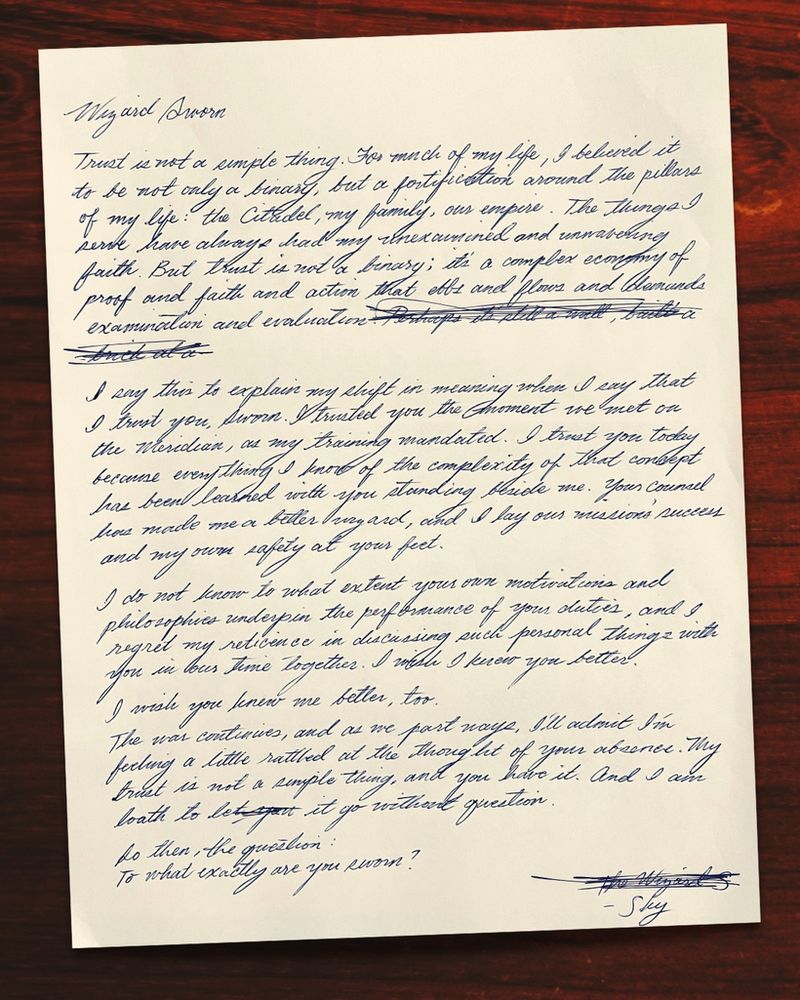 Wizard Sworn
Trust is not a simple thing. For much of my life, I believed it
to be not only a binary, but a fortification around the pillars
of my life: the Citadel, my family, our empire. The things I
serve have always had my unexamined and unwavering
faith. But trust is not a binary; it's a complex economy of
proof and faith and action that ebbs and flows and demands
examination and evaluation. Perhaps it's still a wall, built a
brick at a
I say this to explain my shift in meaning when I say that
I trust you, Sworn. I trusted you the moment we met on
the Meridian, as my training mandated. I trust you today
because everything I know of the complexity of that concept
has been learned with you standing beside me. Your counsel
has made me a better wizard, and I lay our missions' success
and my own safety at your feet.
I do not know to what extent your own motivations and
philosophies underpin the performance of your duties, and I
regret my reticence in discussing such personal things with
you in our time together. I wish I knew you better.
I wish you knew me better, too.
The war continues, and as we part ways, I'll admit I'm
feeling a little rattled at the thought of your absence. My
trust is not a simple thing, and you have it. And I am
loath to let you it go without question.
So then, the question:
To what exactly are you sworn?
the Wizard S
- Sky